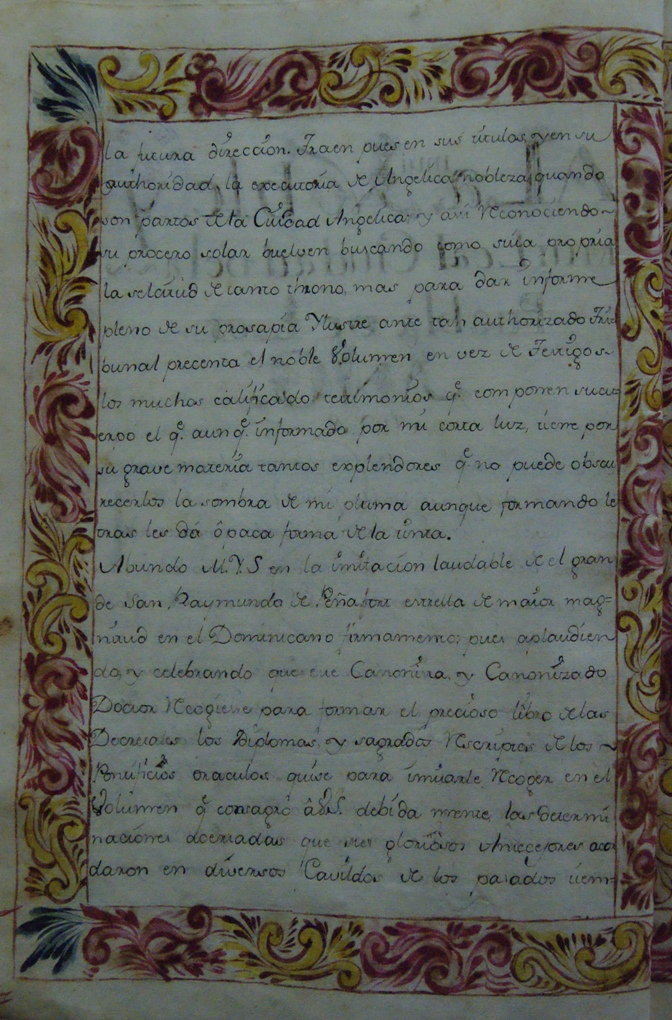 la futura dirección. Traen pues en sus titulos, y en su
authoridad, la executoria de Angelica nobleza, quando
son partos de la Ciudad Angelica; y assi Reconociendo~
su procero solar buelven buscando como suia propria
la solcitud de tanto throno, mas para dar informe
pleno de su prosapia Ylustre ante tan authorizado Tri
bunal precenta el noble Volumen en vez de Testigos
los muchos calificado testimonios q.e componen su cu
erpo el q.e aun q.e informado por mi corta luz, tiene por
su grave materia tantos explendores q.e no puede obscu
recerlos la sombra de mi pluma aunque formando le
tras les dá ôpaca forma de la tinta.
Abundo M.Y.S en la imitacion laudable de el gran
de San Raymundo de Peñafort estrella de maior mag=
nitud en el Dominicano firmamento; pues aplaudien
do, y celebrando que este Canonista, y Canonizado
Doctor Recogiesse para formar el precioso libro de las
Decretales los Diplomas, y sagrados Rescriptos de los ~
Pontificios oraculos, quise para imitarle Recoger en el
Volumen q.e consagro â V.S. debida mente, las determi
naciones acertadas que sus gloriosos Antecesores acor
daron en diversos Cavildos de los pasados tiem=